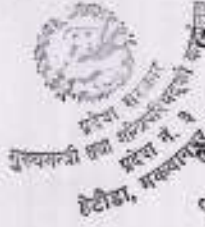 प्रदेश सरकार
मुख्यमन्त्री तथा मन्त्रिपरिषद्को
प्रदेश नं. ३
हेटौंडा, मकवानपुर